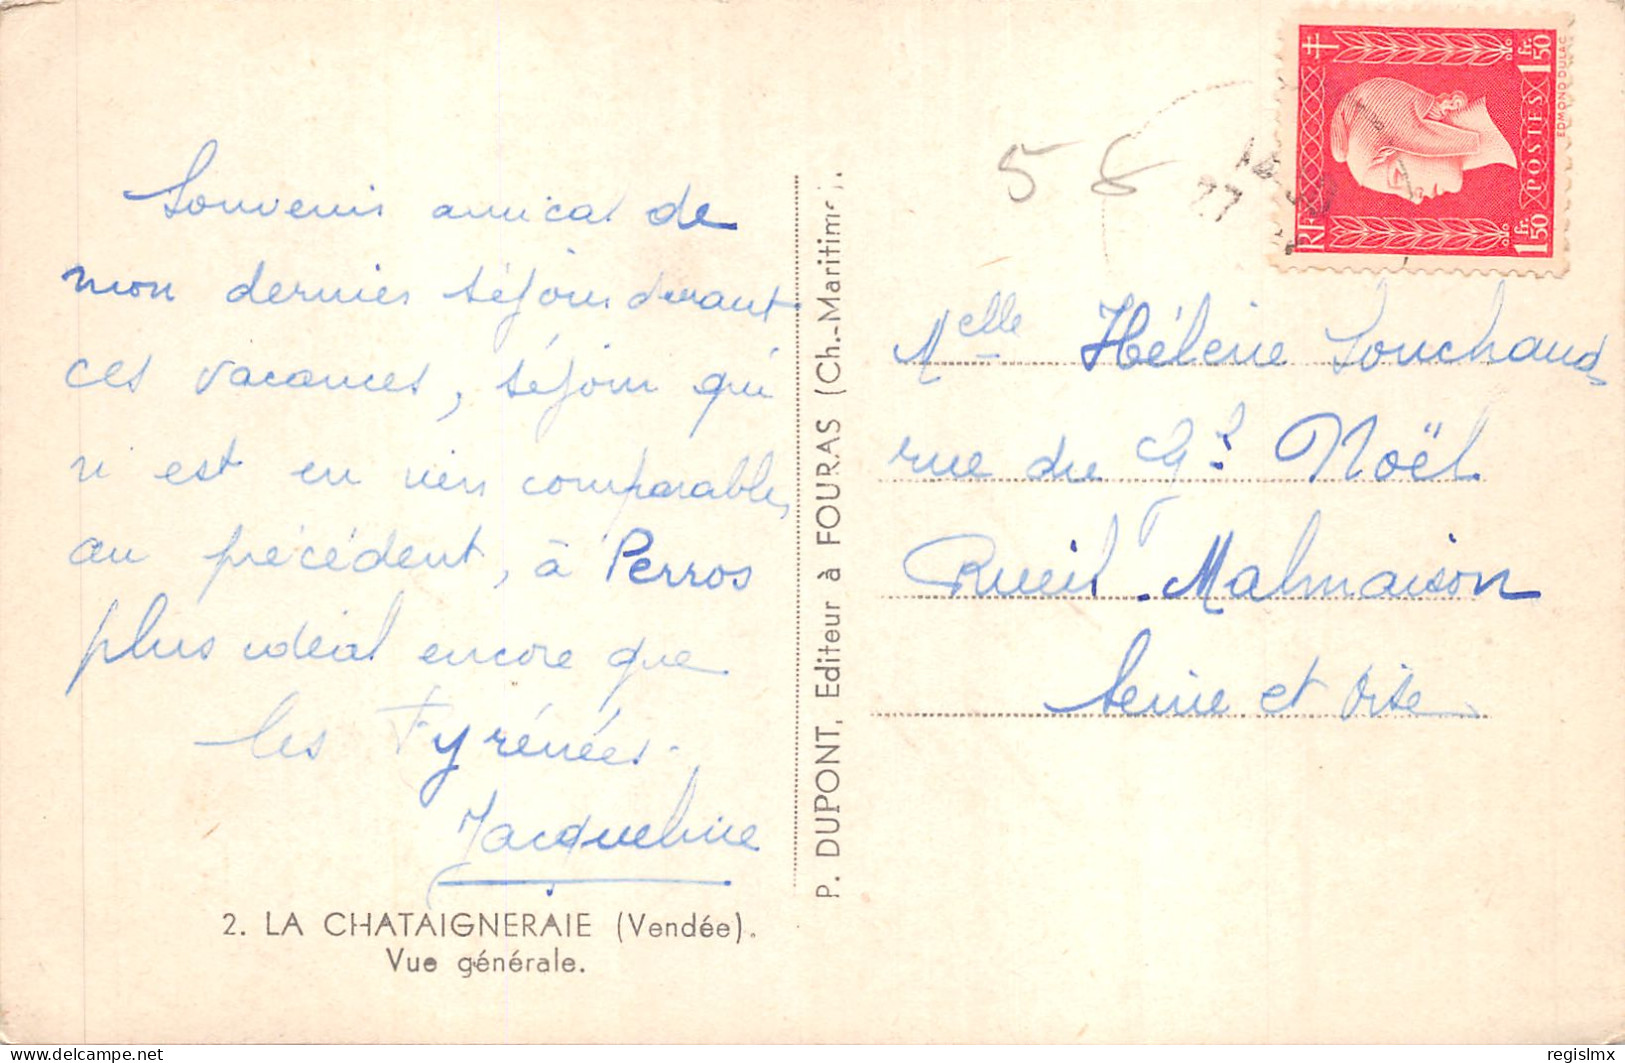 Souvenir amical de
mon dernier séjour durant
ces vacances, séjour qui
n'est en rien comparable,
au précédent, à Perros
plus idéal encore que
les Pyrénées.
Jacqueline
2. LA CHATAIGNERAIE (Vendée).
Vue générale.
P. DUPONT, Editeur à FOURAS (Ch.-Maritime).
58
RF
1Fr.50 POSTES 1Fr.50
EDMOND DULAC
Melle Hélène Souchaud
rue du Gl Noël
Rueil-Malmaison
Seine et Oise
www.delcampe.net
regislmx